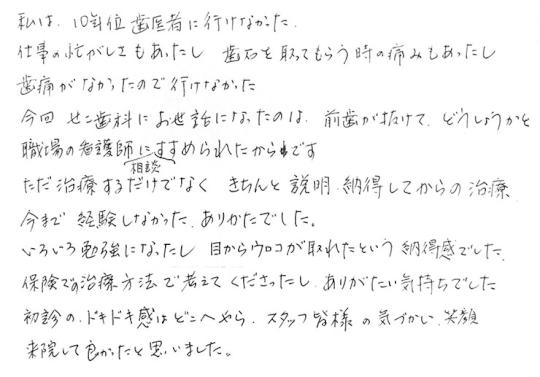 私は、10年位歯医者に行けなかった.
仕事の忙がしさもあったし 歯石を取ってもらう時の痛みもあったし
歯痛がなかったので行けなかった
今回 せこ歯科にお世話になったのは、前歯が抜けて、どうしょうかと
職場の看護師にすすめられたからです
相談
ただ治療するだけでなく きちんと説明.納得してからの治療
今まで 経験しなかった.ありかたでした。
いろいろ勉強になったし 目からウロコが取れたという納得感でした.
保険での治療方法で考えてくださったし.ありがたい気持ちでした
初診の.ドキドキ感はどこへやら.スタッフ皆様の気づかい.笑顔
来院して良かったと思いました。